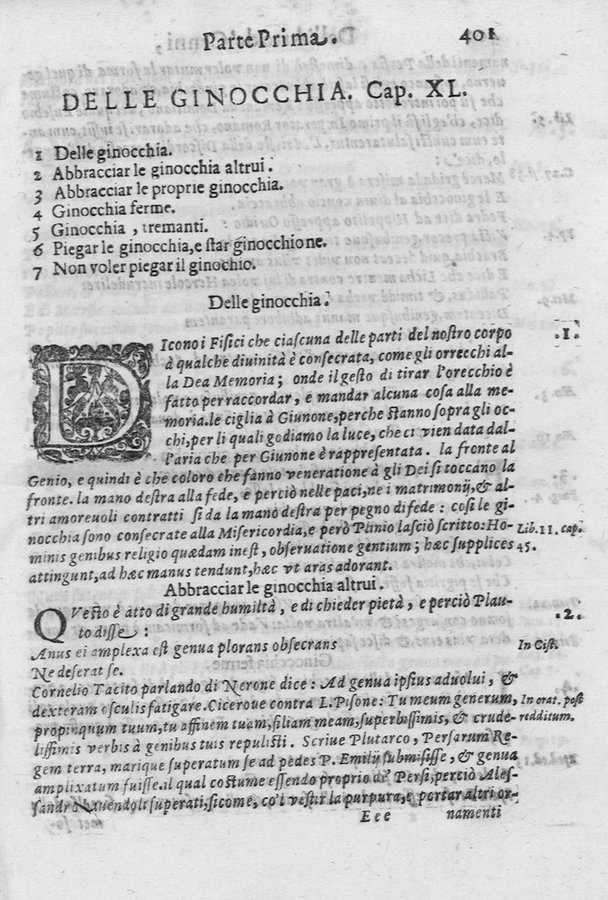 Parte Prima. 401
DELLE GINOCCHIA. Cap. XL.
1 Delle ginocchia.
2 Abbracciar le ginocchia altrui.
3 Abbracciar le proprie ginocchia.
4 Ginocchia ferme.
5 Ginocchia, tremanti.
6 Piegar le ginocchia, e star ginocchione.
7 Non voler piegar il ginochio.
Delle ginocchia.
DIcono i Fisici che ciascuna delle parti del nostro corpo .1.
à qualche divinità è consecrata, come gli orrecchi al-
la Dea Memoria; onde il gesto di tirar l'orecchio è
fatto per raccordar, e mandar alcuna cosa alla me-
moria. le ciglia à Giunone, perche stanno sopra gli oc-
chi, per li quali godiamo la luce, che ci vien data dal-
l'aria che per Giunone è rappresentata. la fronte al
Genio, e quindi è che coloro che fanno veneratione à gli Dei si toccano la
fronte. la mano destra alla fede, e perciò nelle paci, ne i matrimonij, & al-
tri amoreuoli contratti si da la mano destra per pegno di fede: cosi le gi-
nocchia sono consecrate alla Misericordia, e però Plinio lasciò scritto: Ho- Lib. 11. cap.
minis genibus religio quædam inest, obseruatione gentium; hæc supplices 45.
attingunt, ad hæc manus tendunt, hæc vt aras adorant.
Abbracciar le ginocchia altrui.
QVesto è atto di grande humiltà, e di chieder pietà, e perciò Plau- .2.
to disse:
Anus ei amplexa est genua plorans obsecrans In Cist.
Ne deserat se.
Cornelio Tacito parlando di Nerone dice: Ad genua ipsius aduolui, &
dexteram esculis fatigare. Cicerone contra L. Pisone: Tu meum generum, In orat. post
propinquum tuum, tu affinem tuam, filiam meam, superbissimis, & crude- redditum.
lissimis verbis à genibus tuis repulisti. Scriue Plutarco, Persarum Re-
gem terra, marique superatum se ad pedes P. Emilij submisisse, & genua
amplixatum fuisse. il qual costume essendo proprio de' Persi, perciò Ales-
sandro hauendoli superati, sicome, co'l vestir la purpura, e portar altri or-
Eee namenti